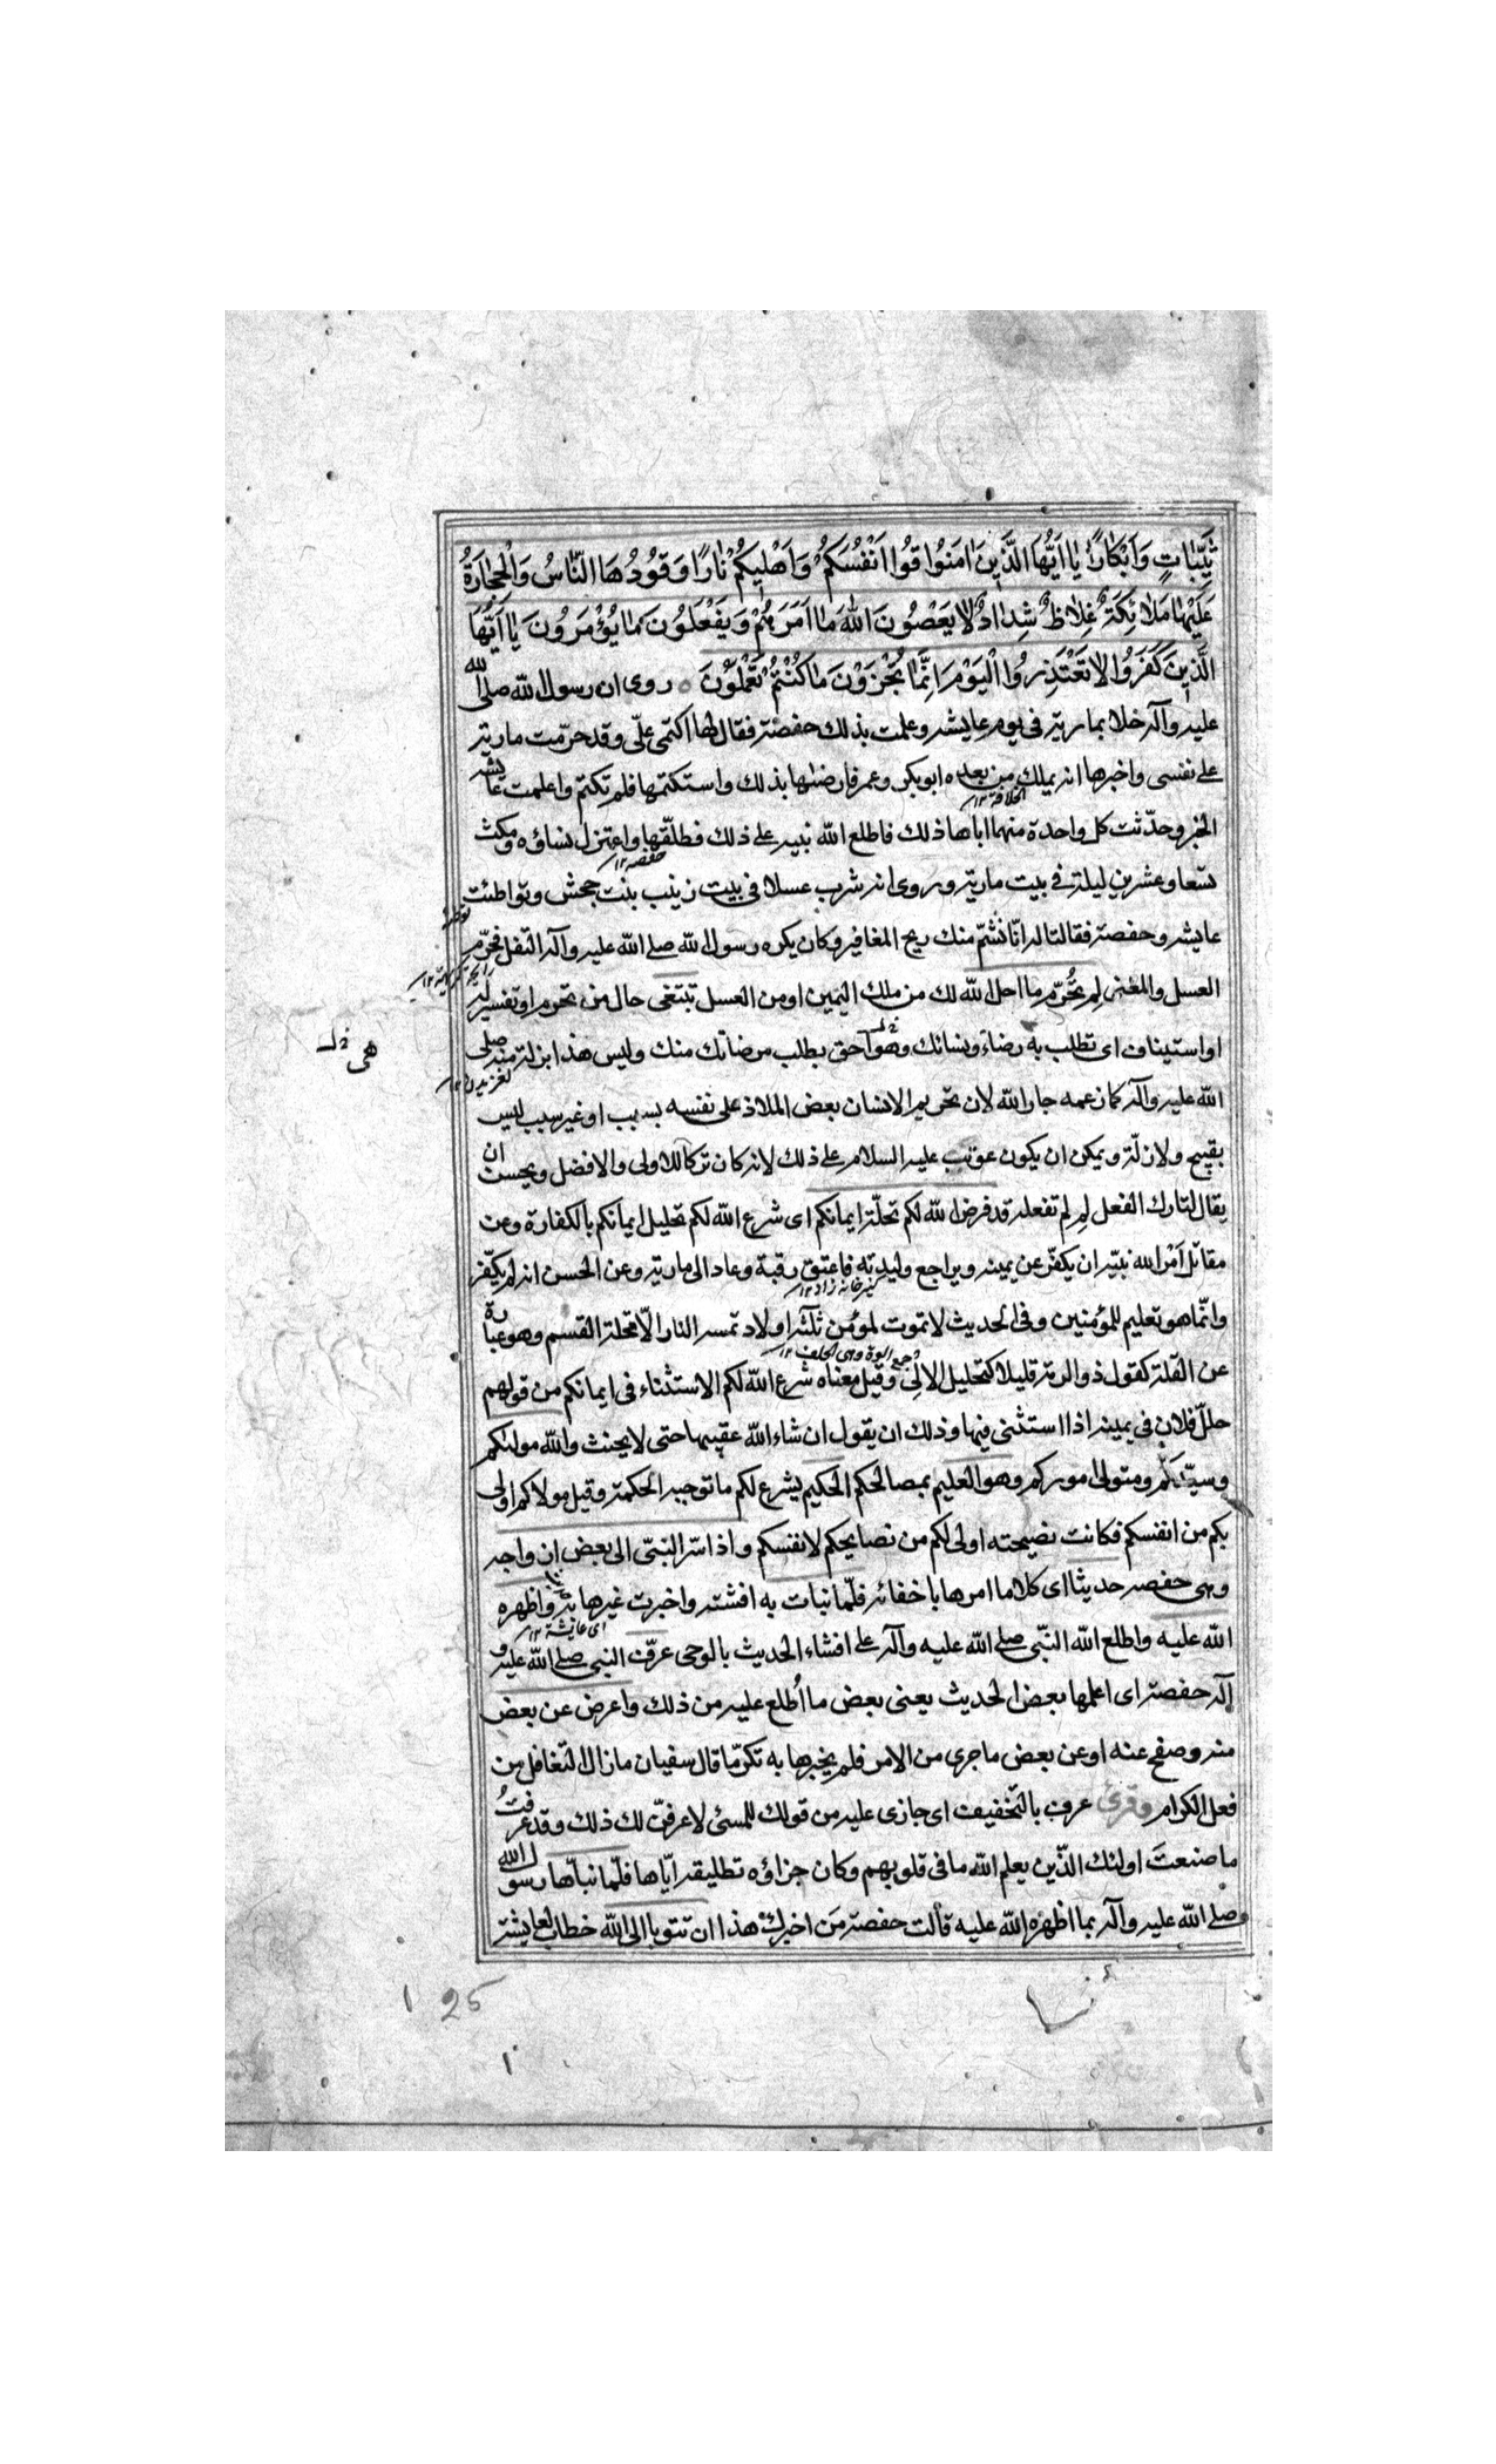 ثَيِّبَاتٍ وَاَبْكَارًا يَا اَيُّهَا الَّذِينَ اٰمَنُوا قُوا اَنْفُسَكُمْ وَاَهْلِيكُمْ نَارًا وَقُودُهَا النَّاسُ وَالْحِجَارَةُ
عَلَيْهَا مَلَائِكَةٌ غِلَاظٌ شِدَادٌ لَا يَعْصُونَ اللّٰهَ مَا اَمَرَهُمْ وَيَفْعَلُونَ مَا يُؤْمَرُونَ يَا اَيُّهَا
الَّذِينَ كَفَرُوا لَا تَعْتَذِرُوا الْيَوْمَ اِنَّمَا تُجْزَوْنَ مَا كُنْتُمْ تَعْمَلُونَ ○ روى ان رسول اللّه صلى اللّه
عليه وآله خلا بمارية فى يوم عايشه وعلمت بذلك حفصة فقال لها اكتمى علّى وقد حرّمت مارية
على نفسى واخبرها انه يملك من بعده ابوبكر وعمر فارضاها بذلك واستكتمها فلم تكتم واعلمت عايشه
الخلافة ١٢
الخبر وحدّثت كل واحدة منهما اباها ذلك فاطلع اللّه نبيه على ذلك فطلّقها واعتزل نساؤه ومكث
حفصه ١٢
تسعا وعشرين ليلة فى بيت مارية وروى انه شرب عسلا فى بيت زينب بنت جحش وتواطئت
عايشه وحفصة فقالتا له انّا نشمّ منك ريح المغافير وكان يكره رسول اللّه صلى اللّه عليه وآله التفل فحرّم
العسل والمعنى لِم تُحَرّم ما احل اللّه لك من ملك اليمين او من العسل تبتغى حال من تحرم او تفسير له
او استيناف اى تطلب به رضاء نسائك وهو احق بطلب مرضاتك منك وليس هذا بزلة منه صلى
هى خ‍ل
لغزيدن ١٢
اللّه عليه وآله كما زعمه جار اللّه لان تحريم الانسان بعض الملاذ على نفسه بسبب او غير سبب ليس
بقبيح ولا زلّة ويمكن ان يكون عوتب عليه السلام على ذلك لانه كان تركا للاولى والافضل ويحسن ان
يقال لتارك الفعل لِم لم تفعله قد فرض اللّه لكم تحلّة ايمانكم اى شرع اللّه لكم تحليل ايمانكم بالكفارة وعن
مقاتل اَمَر اللّه نبيّه ان يكفّر عن يمينه ويراجع وليدته فاعتق رقبة وعاد الى مارية وعن الحسن انه لم يكفّر
كنيز خانه زاد ١٢
وانّما هو تعليم للمؤمنين وفى الحديث لا تموت لمؤمن ثلثه اولاد تمسه النار الّا تحلة القسم وهو عبارة
عن القلّة كقول ذو الرمة قليلا كتحليل الالى وقيل معناه شرع اللّه لكم الاستثناء فى ايمانكم من قولهم
جمع الوة وهى الحلف ١٢
حللّ فلان فى يمينه اذا استثنى فيها وذلك ان يقول ان شاء اللّه عقيبها حتى لا يحنث واللّه موليكم
وسيّدكم ومتولى اموركم وهو العليم بمصالحكم الحكيم يشرع لكم ما توجبه الحكمة وقيل مولاكم اولى
بكم من انفسكم فكانت نصيحته اولى لكم من نصايحكم لانفسكم واذ اسرّ النبىّ الى بعض ازواجه
وهى حفصه حديثا اى كلاما امرها باخفائه فلمّا نبات به افشته واخبرت غيرها به واظهره
اى عايشة ١٢
اللّه عليه واطلع اللّه النبّى صلى اللّه عليه وآله على افشاء الحديث بالوحى عرّف النبى صلى اللّه عليه و
آله حفصة اى اعلمها بعض الحديث يعنى بعض ما اُطلع عليه من ذلك واعرض عن بعض
منه وصفح عنه او عن بعض ما جرى من الامر فلم يخبرها به تكرّما قال سفيان مازال التغافل من
فعل الكرام وقرئ عرف بالتخفيف اى جازى عليه من قولك للمسئ لاعرفنّ لك ذلك وقد عرفتُ
ما صنعتَ اولئك الّذين يعلم اللّه ما فى قلوبهم وكان جزاؤه تطليقه ايّاها فلمّا نبأها رسول اللّه
صلى اللّه عليه وآله بما اظهره اللّه عليه قالت حفصة مَن اخبرك هذا ان تتوبا الى اللّه خطاب لعايشة
25